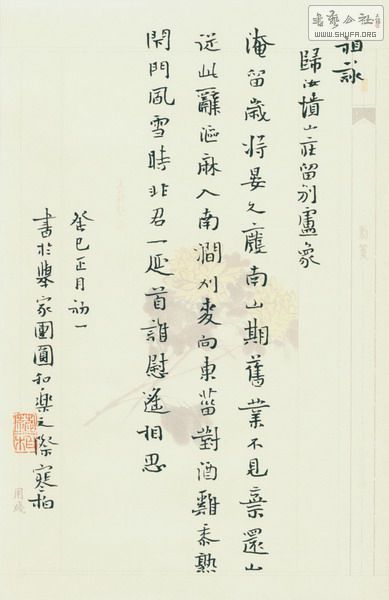 書藝公社
WWW.SHUFA.ORG
祖詠
歸汝墳山莊留別盧象
淹留歲將晏久廢南山期舊業不見棄還山
從此辭漚麻入南澗刈麥向東菑對酒雞黍熟
閉門風雪時非君一延首誰慰遙相思
癸巳正月初一
書於舉家團圓和樂之際寒柏
用箋